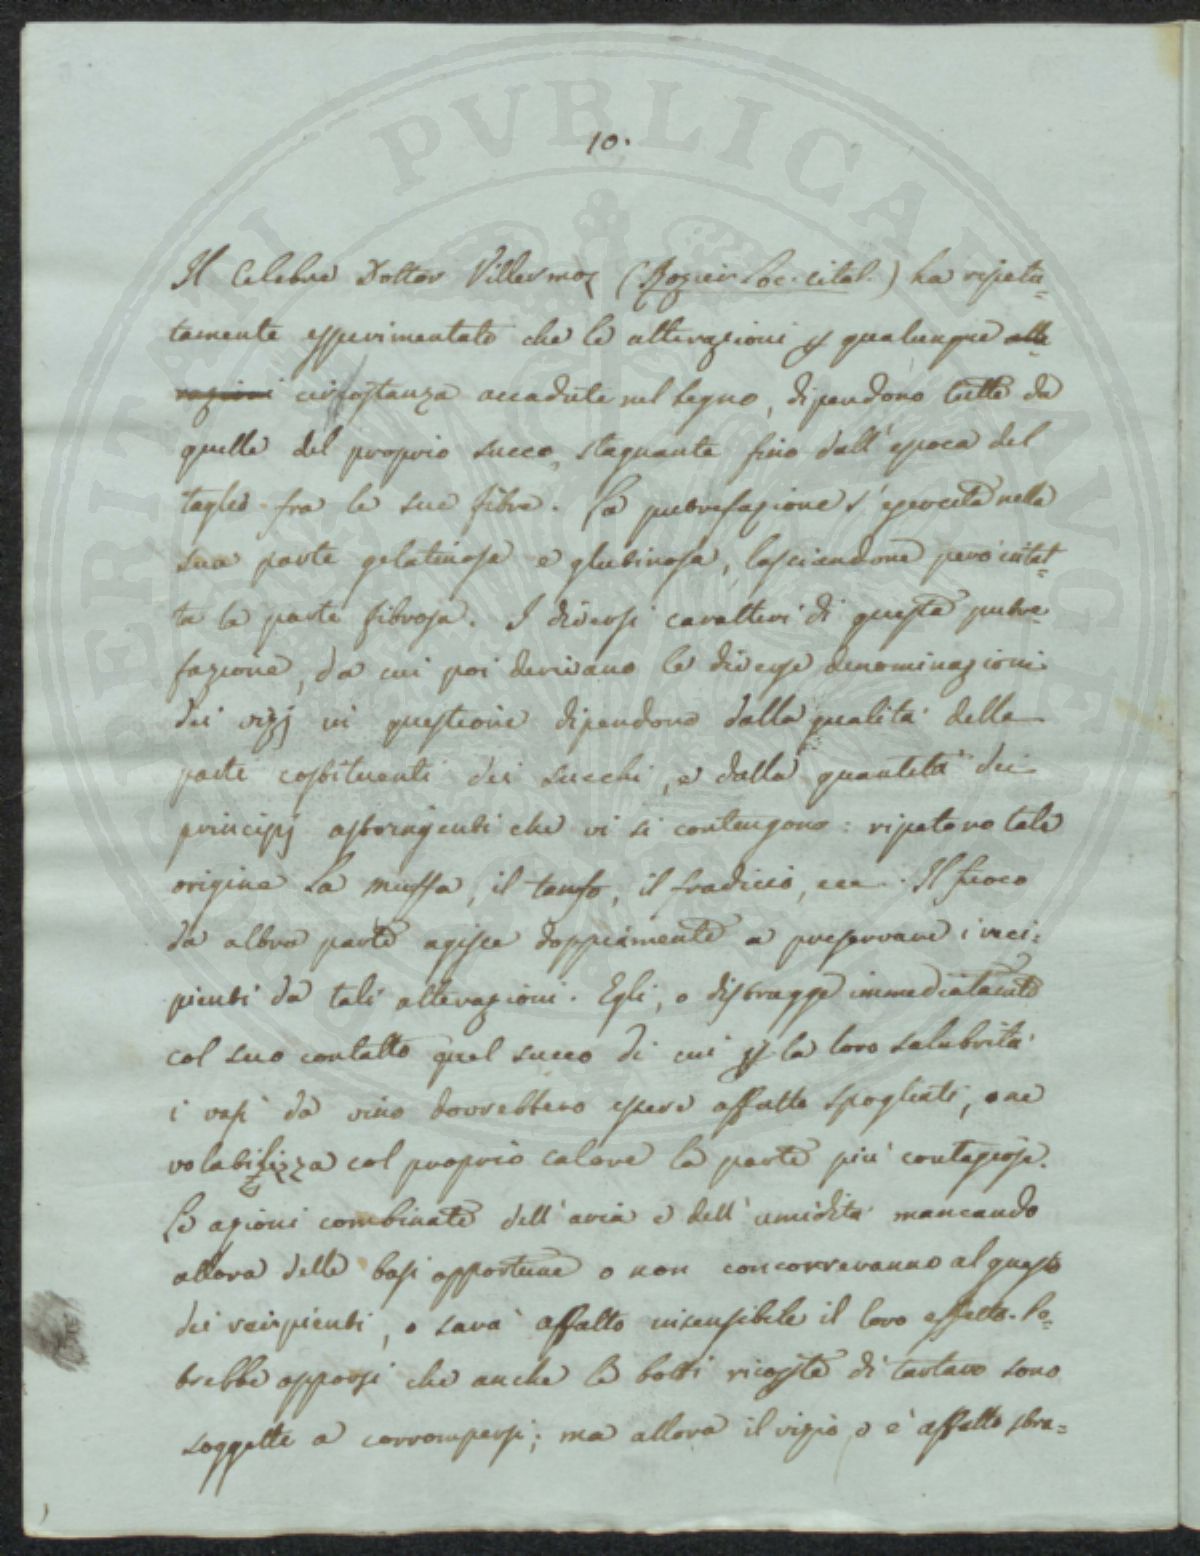 PROSPERITATI PVBLICAE AVGENDAE
10.
Il Celebre Dottor Villermoz (Rozier Loc. citat.) ha ripetu=
tamente esperimentato che le alterazioni p qualunque alte
razioni circostanza accadute nel legno, dipendono tutte da
quelle del proprio succo, stagnante fino dall'epoca del
taglio fra le sue fibre. La putrefazione s'esercita nella
sua parte gelatinosa e glutinosa, lasciandone però intat=
ta la parte fibrosa. I diversi caratteri di questa putre=
fazione, da cui poi derivano le diverse denominazioni
dei vizj in questione dipendono dalla qualità delle
parti costituenti dei succhi, e dalla quantità dei
principj astringenti che vi si contengono: ripetono tale
origine la muffa, il tanfo, il fradicio, ecc. Il fuoco
da altra parte agisce doppiamente a preservare i reci=
pienti da tali alterazioni. Egli, o distrugge immediatamte
col suo contatto quel succo di cui p la loro salubrità
i vasi da vino dovrebbero essere affatto spogliati, o ne
volatilizza col proprio calore la parte più contagiosa.
Le azioni combinate dell'aria e dell'umidità mancando
allora delle basi opportune o non concorreranno al guasto
dei recipienti, o sarà affatto insensibile il loro effetto. Po=
trebbe opporsi che anche le botti ricoste di tartaro sono
soggette a corrompersi; ma allora il vizio, o è affatto stra=